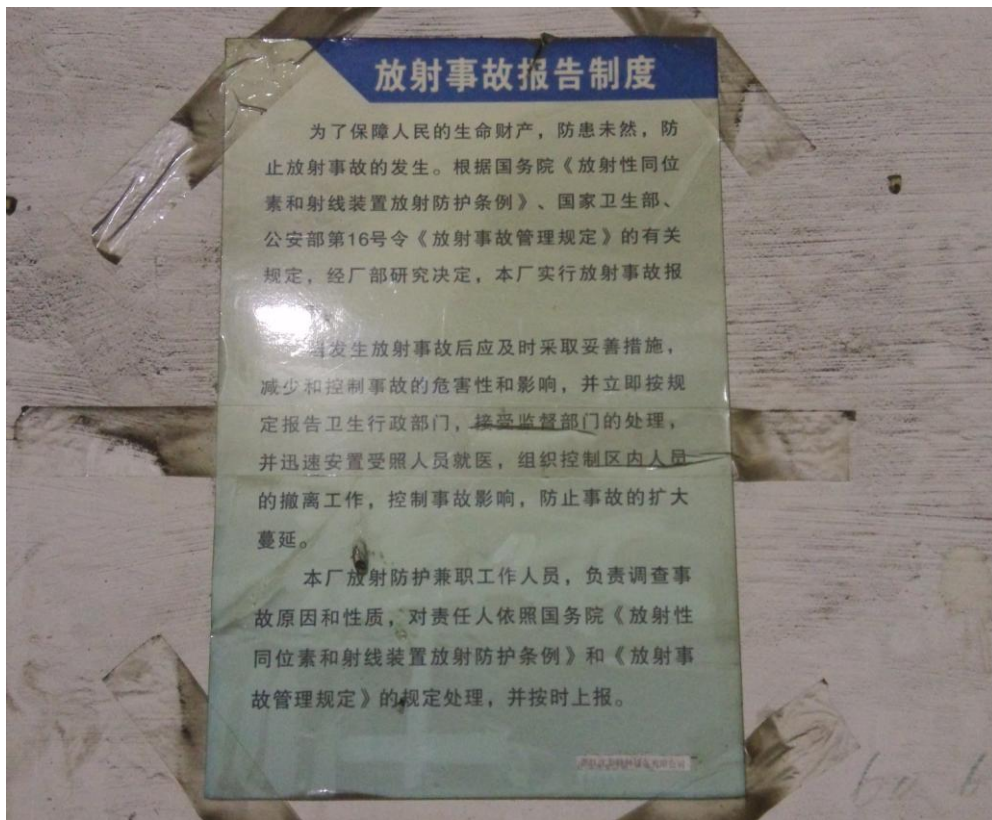 放射事故报告制度
为了保障人民的生命财产，防患未然，防
止放射事故的发生。根据国务院《放射性同位
素和射线装置放射防护条例》、国家卫生部、
公安部第16号令《放射事故管理规定》的有关
规定，经厂部研究决定，本厂实行放射事故报
发生放射事故后应及时采取妥善措施，
减少和控制事故的危害性和影响，并立即按规
定报告卫生行政部门，接受监督部门的处理，
并迅速安置受照人员就医，组织控制区内人员
的撤离工作，控制事故影响，防止事故的扩大
蔓延。
本厂放射防护兼职工作人员，负责调查事
故原因和性质，对责任人依照国务院《放射性
同位素和射线装置放射防护条例》和《放射事
故管理规定》的规定处理，并按时上报。